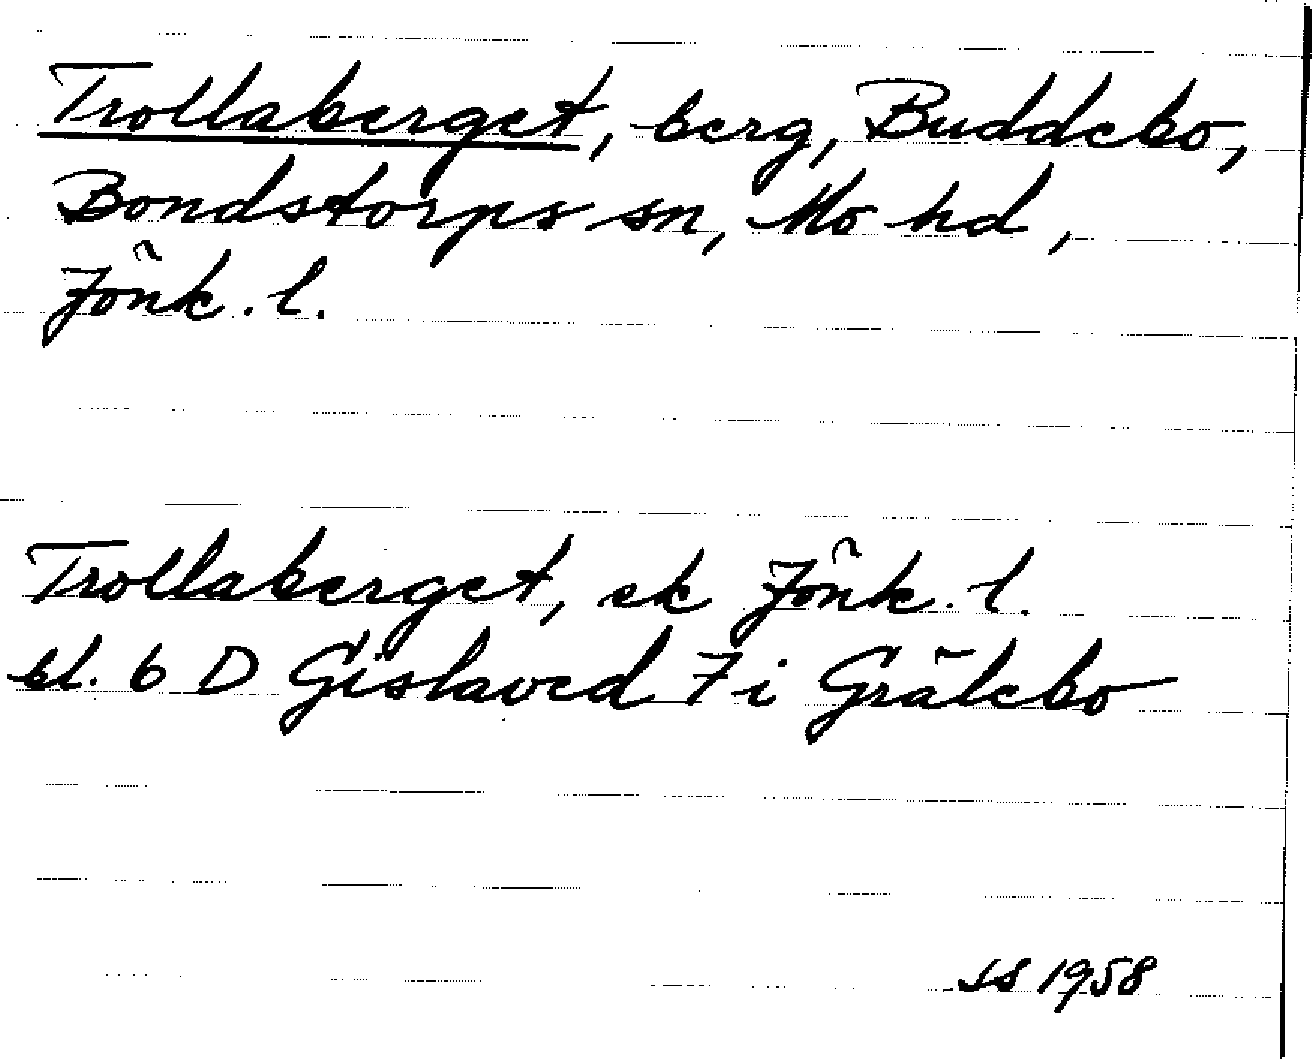 Trollaberget, berg, Buddebo,
Bondstorps sn, Mo hd,
Jönk. l.
Trollaberget, ek Jönk. l.
bl. 6 D Gislaved 7 i Grälebo
SS 1958